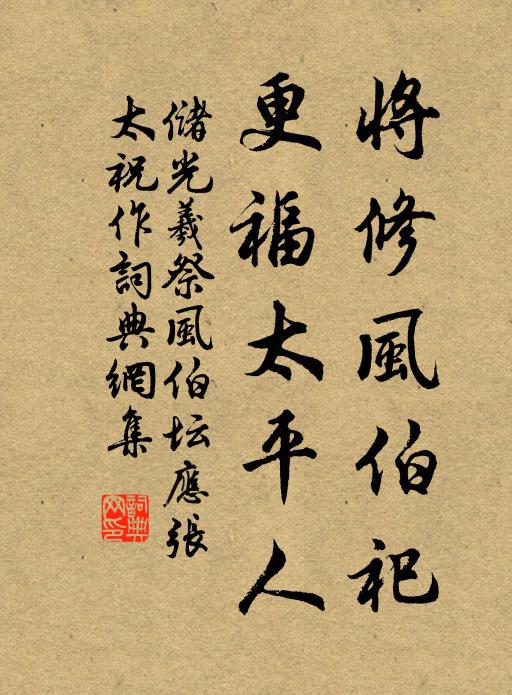 將修風伯祀
更福太平人
儲光羲祭風伯坛應張
太祝作詞典網集
詞典
网印